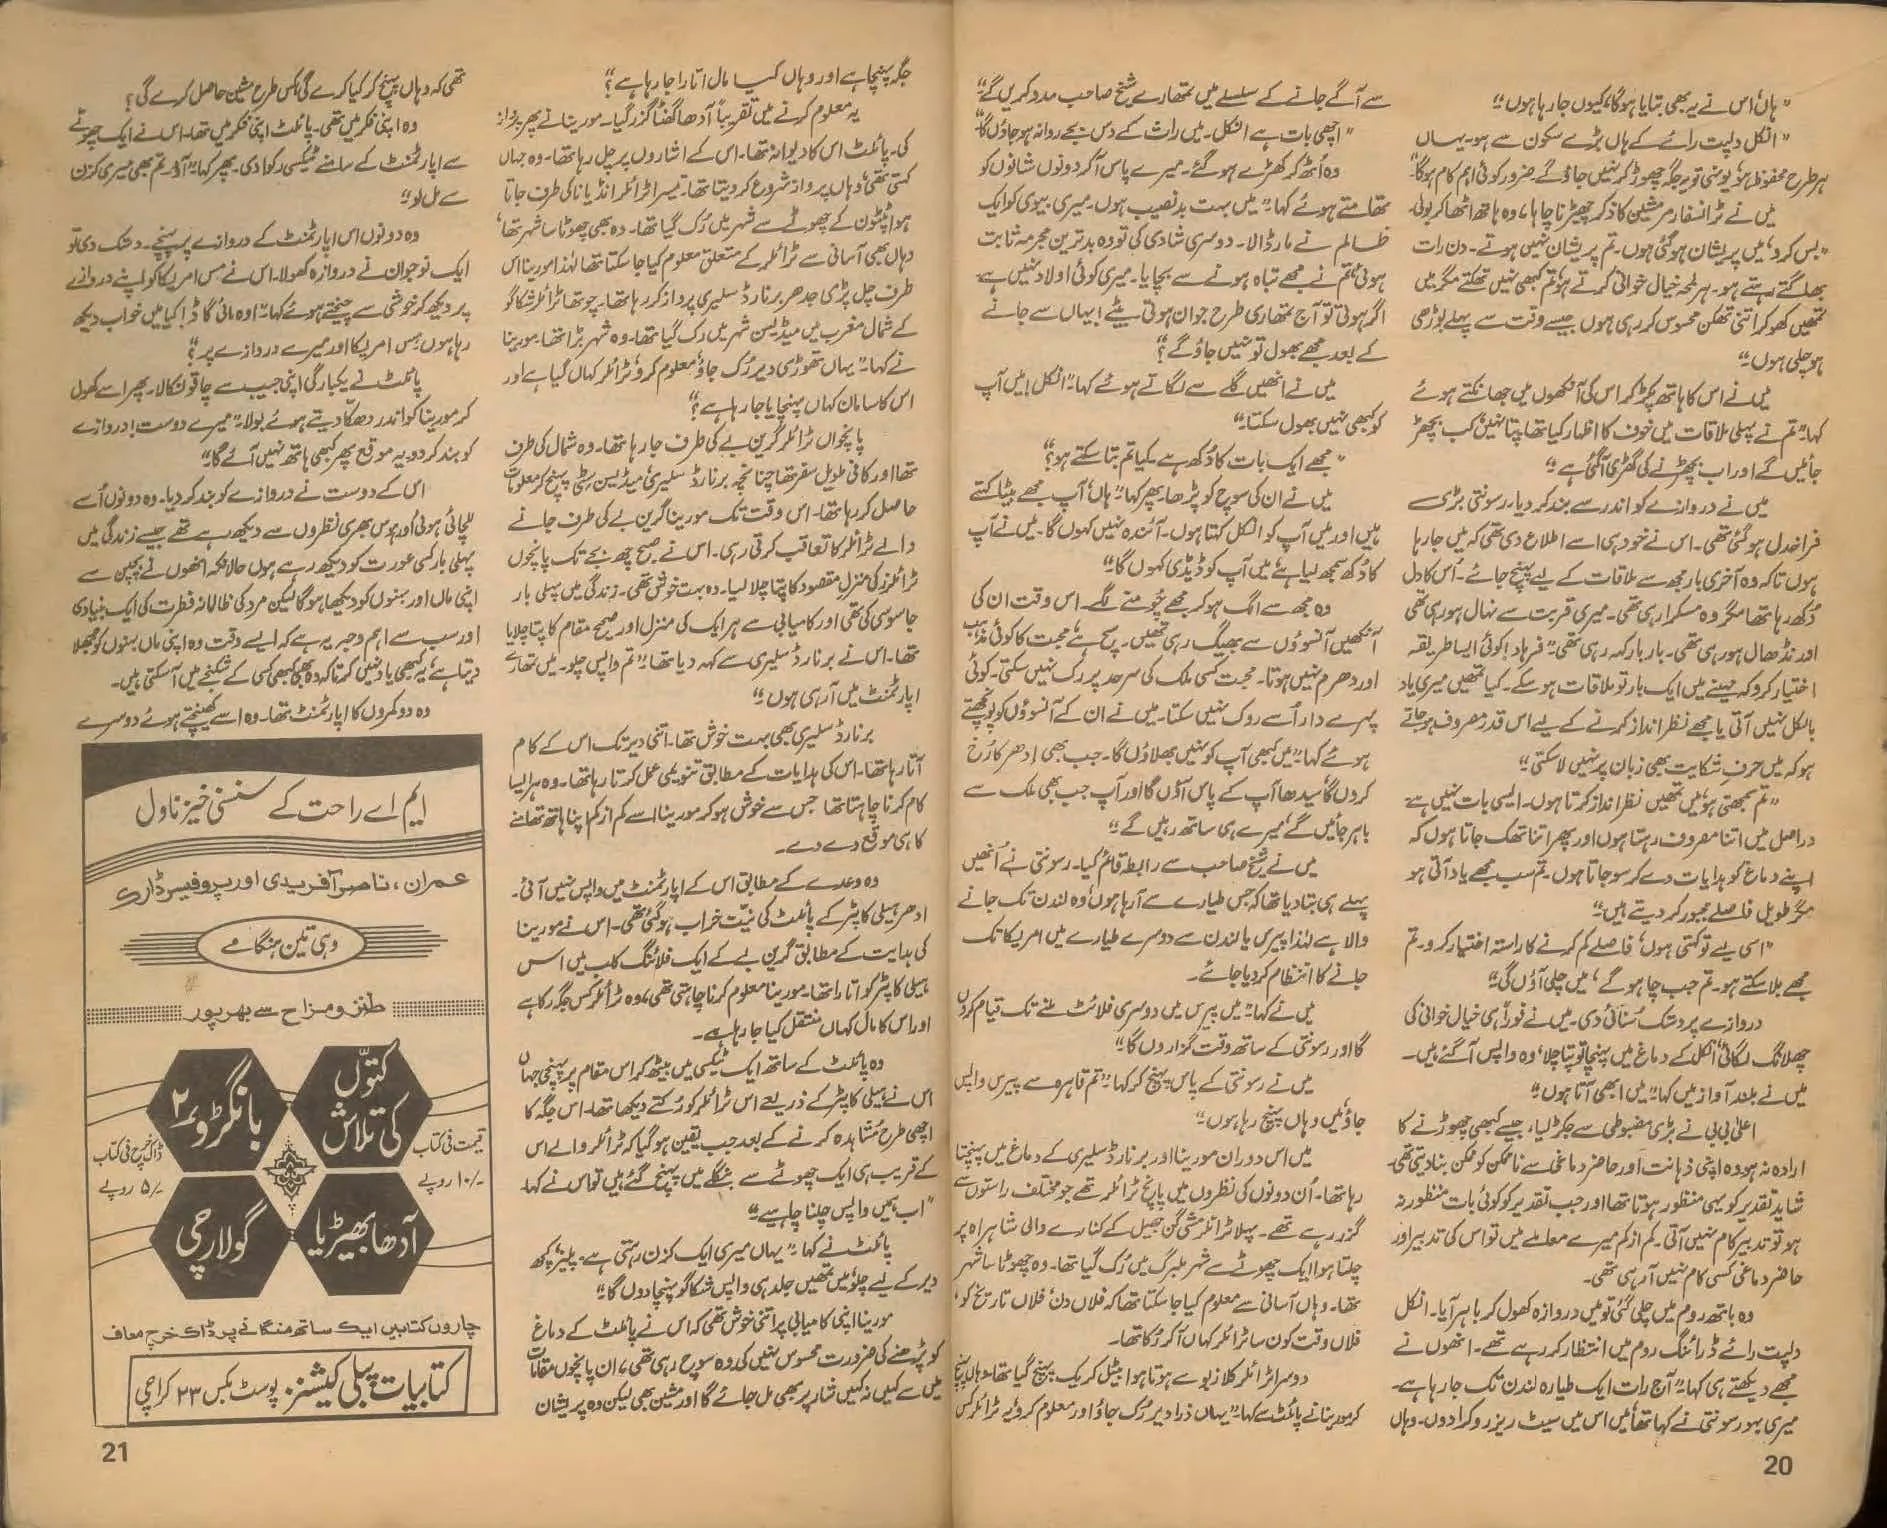 "ہاں، اس نے یہ بھی بتایا ہوگا، کیوں جا رہا ہوں؟"
"انکل دلپت رائے کے ہاں بڑے سکون سے ہو۔ یہاں
ہر طرح محفوظ ہو، یونہی تو یہ جگہ چھوڑ کر نہیں جاؤگے۔ ضرور کوئی اہم کام ہوگا۔"
میں نے ٹرانسفارمر مشین کا ذکر چھیڑنا چاہا، وہ ہاتھ اٹھا کر بولی
"بس کرو، میں پریشان ہوگئی ہوں۔ تم پریشان نہیں ہوتے۔ دن رات
بھاگتے رہتے ہو۔ ہر لمحہ خیال خوانی کرتے ہو، تم کبھی نہیں تھکتے مگر میں
تمھیں کھو کر اتنی تھکن محسوس کر رہی ہوں جیسے وقت سے پہلے بوڑھی
ہوچلی ہوں۔"
میں نے اس کا ہاتھ پکڑ کر اس کی آنکھوں میں جھانکتے ہوئے
کہا۔ "تم نے پہلی ملاقات میں خوف کا اظہار کیا تھا۔ پتا نہیں کب بچھڑ
جائیں گے اور اب بچھڑنے کی گھڑی آگئی ہے۔"
میں نے دروازے کو اندر سے بند کر دیا۔ رسونتی بڑی
فراخدل ہوگئی تھی۔ اس نے خود ہی اسے اطلاع دی تھی کہ میں جا رہا
ہوں تاکہ وہ آخری بار مجھ سے ملاقات کے لیے پہنچ جائے۔ اُس کا دل
دُکھ رہا تھا مگر وہ مسکرا رہی تھی۔ میری قربت سے نہال ہو رہی تھی
اور نڈھال ہو رہی تھی۔ بار بار کہہ رہی تھی "فرہاد! کوئی ایسا طریقہ
اختیار کرو کہ مہینے میں ایک بار تو ملاقات ہوسکے۔ کیا تمھیں میری یاد
بالکل نہیں آتی یا مجھے نظر انداز کرنے کے لیے اس قدر مصروف ہو جاتے
ہو کہ میں حرفِ شکایت بھی زبان پر نہیں لا سکتی۔"
"تم سمجھتی ہو، میں تمھیں نظر انداز کرتا ہوں۔ ایسی بات نہیں ہے
دراصل میں اتنا مصروف رہتا ہوں اور پھر اتنا تھک جاتا ہوں کہ
اپنے دماغ کو ہدایات دے کر سو جاتا ہوں۔ تم سب مجھے یاد آتی ہو
مگر طویل فاصلے مجبور کر دیتے ہیں۔"
"اسی لیے تو کہتی ہوں، فاصلے کم کرنے کا راستہ اختیار کرو۔ تم
مجھے بلا سکتے ہو۔ تم جب چاہو گے، میں چلی آؤں گی۔"
دروازے پر دستک سنائی دی۔ میں نے فوراً ہی خیال خوانی کی
چھلانگ لگائی، انکل کے دماغ میں پہنچا تو پتا چلا، وہ واپس آگئے ہیں۔
میں نے بلند آواز میں کہا۔ "میں ابھی آتا ہوں۔"
اعلیٰ بی بی نے بڑی مضبوطی سے جکڑ لیا، جیسے کبھی چھوڑنے کا
ارادہ نہ ہو۔ وہ اپنی ذہانت اور حاضر دماغی سے ناممکن کو ممکن بنا دیتی تھی۔
شاید تقدیر کو یہی منظور ہوتا تھا اور جب تقدیر کو کوئی بات منظور نہ
ہو تو تدبیر کام نہیں آتی۔ کم از کم میرے معاملے میں تو اس کی تدبیر اور
حاضر دماغی کسی کام نہیں آ رہی تھی۔
وہ باتھ روم میں چلی گئی تو میں دروازہ کھول کر باہر آیا۔ انکل
دلپت رائے ڈرائنگ روم میں انتظار کر رہے تھے۔ انھوں نے
مجھے دیکھتے ہی کہا۔ "آج رات ایک طیارہ لندن تک جا رہا ہے۔
میری بہو رسونتی نے کہا تھا، میں اس میں سیٹ ریزرو کرا دوں۔ وہاں
سے آگے جانے کے سلسلے میں تمھارے شیخ صاحب مدد کریں گے"
"اچھی بات ہے انکل۔ میں رات کے دس بجے روانہ ہو جاؤں گا"
وہ اُٹھ کر کھڑے ہوگئے۔ میرے پاس آکر دونوں شانوں کو
تھامتے ہوئے کہا۔ "میں بہت بدنصیب ہوں۔ میری بیوی کو ایک
ظالم نے مار ڈالا۔ دوسری شادی کی تو وہ بدترین مجرمہ ثابت
ہوئی، تم نے مجھے تباہ ہونے سے بچایا۔ میری کوئی اولاد نہیں ہے۔
اگر ہوتی تو آج تمھاری طرح جوان ہوتی بیٹے! یہاں سے جانے
کے بعد مجھے بھول تو نہیں جاؤ گے؟"
میں نے انھیں گلے سے لگاتے ہوئے کہا۔ "انکل! میں آپ
کو کبھی نہیں بھول سکتا۔"
"مجھے ایک بات کا دُکھ ہے۔ کیا تم بتا سکتے ہو؟"
میں نے ان کی سوچ کو پڑھا۔ پھر کہا۔ "ہاں، آپ مجھے بیٹا کہتے
ہیں اور میں آپ کو انکل کہتا ہوں۔ آئندہ نہیں کہوں گا۔ میں نے آپ
کا دُکھ سمجھ لیا ہے، میں آپ کو ڈیڈی کہوں گا۔"
وہ مجھ سے الگ ہو کر مجھے چُومنے لگے۔ اس وقت ان کی
آنکھیں آنسوؤں سے بھیگ رہی تھیں۔ سچ ہے، محبت کا کوئی مذہب
اور دھرم نہیں ہوتا۔ محبت کسی ملک کی سرحد پر رُک نہیں سکتی۔ کوئی
پہرے دار اُسے روک نہیں سکتا۔ میں نے ان کے آنسوؤں کو پونچھتے
ہوئے کہا۔ "میں کبھی آپ کو نہیں بھلاؤں گا۔ جب بھی ادھر کا رُخ
کروں گا، سیدھا آپ کے پاس آؤں گا اور آپ جب بھی ملک سے
باہر جائیں گے، میرے ہی ساتھ رہیں گے۔"
میں نے شیخ صاحب سے رابطہ قائم کیا۔ رسونتی نے اُنھیں
پہلے ہی بتا دیا تھا کہ جس طیارے سے آ رہا ہوں، وہ لندن تک جانے
والا ہے لہٰذا پیرس یا لندن سے دوسرے طیارے میں امریکا تک
جانے کا انتظام کر دیا جائے۔
میں نے کہا۔ "میں پیرس میں دوسری فلائٹ ملنے تک قیام کروں
گا اور رسونتی کے ساتھ وقت گزاروں گا۔"
میں نے رسونتی کے پاس پہنچ کر کہا۔ "تم قاہرہ سے پیرس واپس
جاؤ، میں وہاں پہنچ رہا ہوں۔"
میں اس دوران مورینا اور برنارڈ سلیری کے دماغ میں پہنچتا
رہا تھا۔ اُن دونوں کی نظروں میں پانچ ٹرائلر تھے جو مختلف راستوں سے
گزر رہے تھے۔ پہلا ٹرائلر مشی گن جھیل کے کنارے والی شاہراہ پر
چلتا ہوا ایک چھوٹے سے شہر ملبرگ میں رُک گیا تھا۔ وہ چھوٹا سا شہر
تھا۔ وہاں آسانی سے معلوم کیا جاسکتا تھا کہ فلاں دن، فلاں تاریخ کو،
فلاں وقت کون سا ٹرائلر کہاں آکر رُکا تھا۔
دوسرا ٹرائلر کلازیو سے ہوتا ہوا بیٹل کریک پہنچ گیا تھا۔ وہاں پہنچ
کر مورینا نے پائلٹ سے کہا۔ "یہاں ذرا دیر رُک جاؤ اور معلوم کرو، یہ ٹرائلر کس
20
جگہ پہنچا ہے اور وہاں کیا مال اتارا جا رہا ہے؟"
یہ معلوم کرنے میں تقریباً آدھا گھنٹا گزر گیا۔ مورینا نے پھر پرواز
کی۔ پائلٹ اس کا دیوانہ تھا۔ اس کے اشاروں پر چل رہا تھا۔ وہ جہاں
کہتی تھی، وہاں پرواز شروع کر دیتا تھا۔ تیسرا ٹرائلر انڈیانا کی طرف جاتا
ہوا پٹون کے چھوٹے سے شہر میں رُک گیا تھا۔ وہ بھی چھوٹا سا شہر تھا،
وہاں بھی آسانی سے ٹرائلر کے متعلق معلوم کیا جا سکتا تھا لہٰذا مورینا اس
طرف چل پڑی جدھر برنارڈ سلیری پرواز کر رہا تھا۔ چوتھا ٹرائلر شکاگو
کے شمال مغرب میں میڈیسن شہر میں رُک گیا تھا۔ وہ شہر بڑا تھا۔ مورینا
نے کہا۔ "یہاں تھوڑی دیر رُک جاؤ، معلوم کرو، ٹرائلر کہاں گیا ہے اور
اس کا سامان کہاں پہنچایا جا رہا ہے؟"
پانچواں ٹرائلر گرین بے کی طرف جا رہا تھا۔ وہ شمال کی طرف
تھا اور کافی طویل سفر تھا چنانچہ برنارڈ سلیری، میڈیسن سٹی پہنچ کر معلومات
حاصل کر رہا تھا۔ اس وقت تک مورینا گرین بے کی طرف جانے
والے ٹرائلر کا تعاقب کرتی رہی۔ اس نے صبح چھ بجے تک پانچوں
ٹرائلرز کی منزلِ مقصود کا پتا چلا لیا۔ وہ بہت خوش تھی۔ زندگی میں پہلی بار
جاسوسی کی تھی اور کامیابی سے ہر ایک کی منزل اور صحیح مقام کا پتا چلایا
تھا۔ اس نے برنارڈ سلیری سے کہہ دیا تھا۔ "تم واپس چلو۔ میں تمھارے
اپارٹمنٹ میں آ رہی ہوں۔"
برنارڈ سلیری بھی بہت خوش تھا۔ اتنی دیر تک اس کے کام
آتا رہا تھا۔ اس کی ہدایات کے مطابق تنویمی عمل کرتا رہا تھا۔ وہ ہر ایسا
کام کرنا چاہتا تھا جس سے خوش ہو کر مورینا اسے کم از کم اپنا ہاتھ تھامنے
کا ہی موقع دے دے۔
وہ وعدے کے مطابق اس کے اپارٹمنٹ میں واپس نہیں آئی۔
ادھر ہیلی کاپٹر کے پائلٹ کی نیّت خراب ہوگئی تھی۔ اس نے مورینا
کی ہدایت کے مطابق گرین بے کے ایک فلائنگ کلب میں اس
ہیلی کاپٹر کو اتارا تھا۔ مورینا معلوم کرنا چاہتی تھی، وہ ٹرائلر کس جگہ رُکا ہے
اور اس کا مال کہاں منتقل کیا جا رہا ہے۔
وہ پائلٹ کے ساتھ ایک ٹیکسی میں بیٹھ کر اس مقام پر پہنچی جہاں
اس نے ہیلی کاپٹر کے ذریعے اس ٹرائلر کو رُکتے دیکھا تھا۔ اس جگہ کا
اچھی طرح مُشاہدہ کرنے کے بعد جب یقین ہوگیا کہ ٹرائلر والے اس
کے قریب ہی ایک چھوٹے سے بنگلے میں پہنچ گئے ہیں تو اس نے کہا۔
"اب ہمیں واپس چلنا چاہیے۔"
پائلٹ نے کہا۔ "یہاں میری ایک کزن رہتی ہے۔ پلیز، کچھ
دیر کے لیے چلو، میں تمھیں جلد ہی واپس شکاگو پہنچا دوں گا۔"
مورینا اپنی کامیابی پر اتنی خوش تھی کہ اس نے پائلٹ کے دماغ
کو پڑھنے کی ضرورت محسوس نہیں کی، وہ سوچ رہی تھی، ان پانچوں مقامات
میں سے کہیں نہ کہیں فنار بھی مل جائے گا اور مشین بھی لیکن وہ پریشان
تھی کہ وہاں پہنچ کر کیا کرے گی، کس طرح مشین حاصل کرے گی؟
وہ اپنی فکر میں تھی۔ پائلٹ اپنی فکر میں تھا۔ اس نے ایک چھوٹے
سے اپارٹمنٹ کے سامنے ٹیکسی رکوا دی۔ پھر کہا۔ "آؤ، تم بھی میری کزن
سے مل لو۔"
وہ دونوں اس اپارٹمنٹ کے دروازے پر پہنچے۔ دستک دی تو
ایک نوجوان نے دروازہ کھولا۔ اس نے مس امریکا کو اپنے دروازے
پر دیکھ کر خوشی سے چیختے ہوئے کہا۔ "اوہ مائی گاڈ! کیا میں خواب دیکھ
رہا ہوں، مس امریکا اور میرے دروازے پر؟"
پائلٹ نے یکبارگی اپنی جیب سے چاقو نکالا۔ پھر اسے کھول
کر مورینا کو اندر دھکا دیتے ہوئے بولا۔ "میرے دوست! دروازے
کو بند کردو۔ یہ موقع پھر کبھی ہاتھ نہیں آئے گا۔"
اس کے دوست نے دروازے کو بند کر دیا۔ وہ دونوں اُسے
للچائی ہوئی اور ہوس بھری نظروں سے دیکھ رہے تھے جیسے زندگی میں
پہلی بار کسی عورت کو دیکھ رہے ہوں حالانکہ انھوں نے بچپن سے
اپنی ماں اور بہنوں کو دیکھا ہوگا لیکن مرد کی ظالمانہ فطرت کی ایک بنیادی
اور سب سے اہم وجہ یہ ہے کہ ایسے وقت وہ اپنی ماں بہنوں کو بُھلا
دیتا ہے، یہ کبھی یاد نہیں کرتا کہ وہ بھی کبھی کسی کے شکنجے میں آسکتی ہیں۔
وہ دو کمروں کا اپارٹمنٹ تھا۔ وہ اسے کھینچتے ہوئے دوسرے
ایم اے راحت کے سنسنی خیز ناول
عمران، ناصر آفریدی اور پروفیسر ڈارک
وہی تین ہنگامے
طنز و مزاح سے بھرپور
کتوّں کی تلاش
بانگڑو ۲
آدھا بھیڑیا
گولارچی
قیمت فی کتاب
۱۰/- روپے
ڈاک خرچ فی کتاب
۵/- روپے
چاروں کتابیں ایک ساتھ منگانے پر ڈاک خرچ معاف
کتابیات پبلی کیشنز، پوسٹ بکس ۲۳ کراچی
21